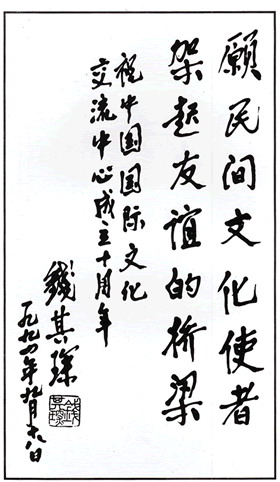 願民间文化使者
架起友谊的桥梁
祝中国国际文化
交流中心成立十周年
钱其琛
一九九四年九月十八日